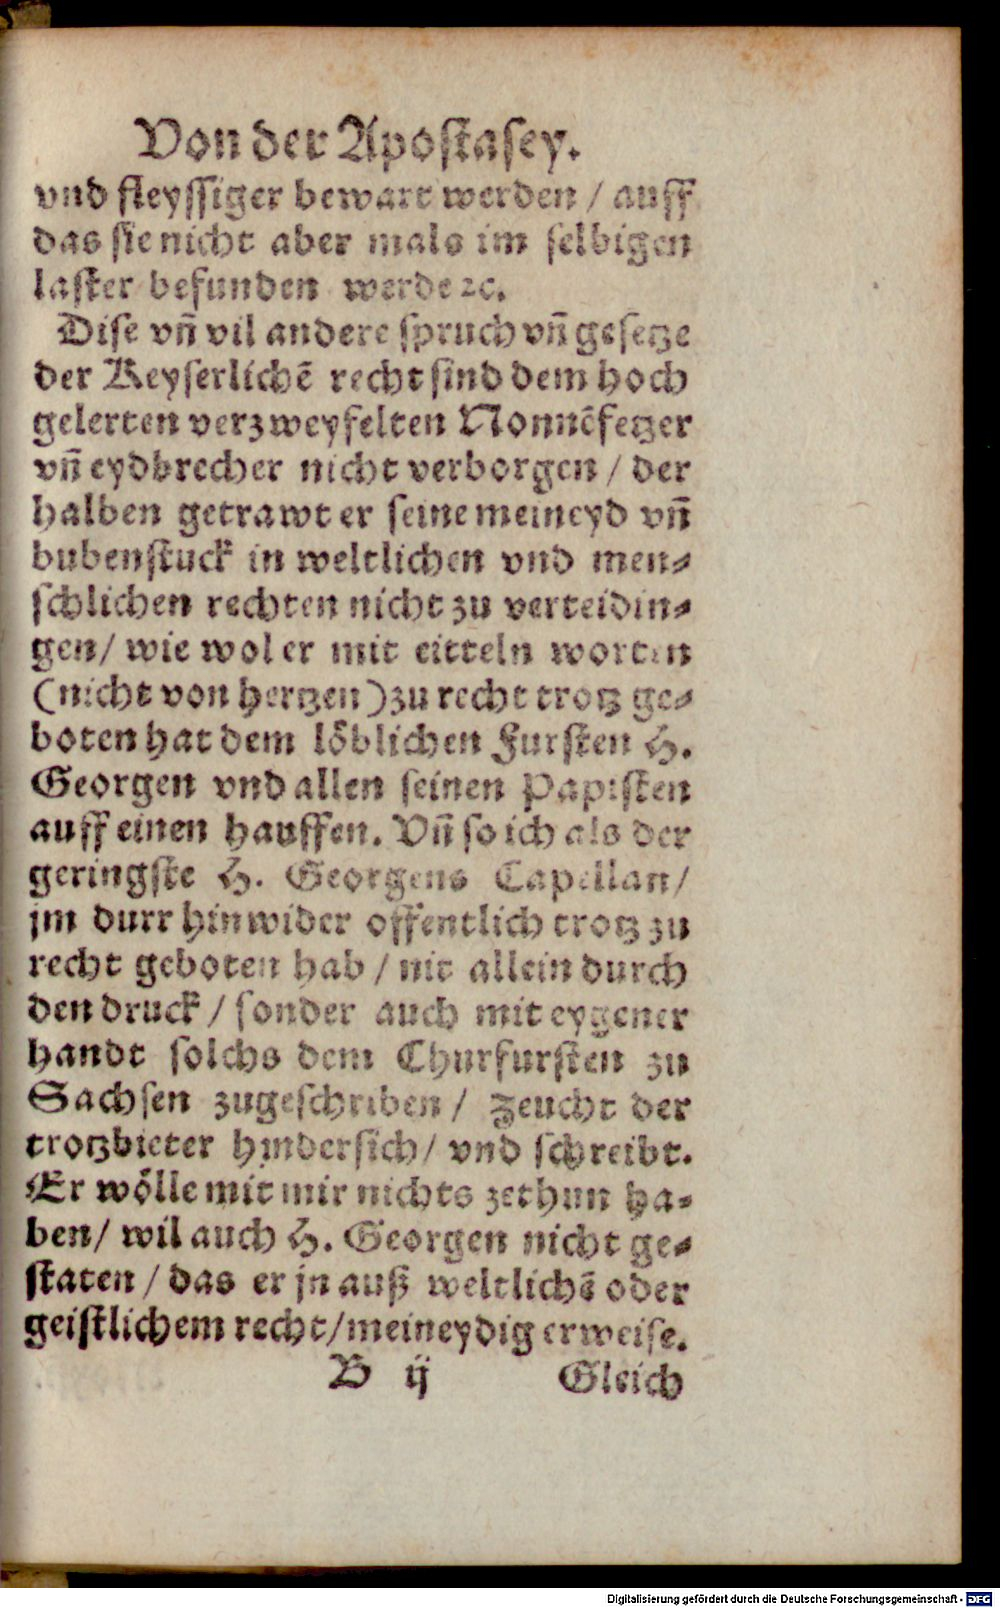 Von der Apostasey.
vnd fleyssiger bewart werden / auff
das sie nicht aber mals im selbigen
laster befunden werde ꝛc.
Dise vñ vil andere spruch vñ gesetze
der Keyserlichẽ recht sind dem hoch
gelerten verzweyfelten Nonnẽfetzer
vñ eydbrecher nicht verborgen / der
halben getrawt er seine meineyd vñ
bubenstuck in weltlichen vnd men⸗
schlichen rechten nicht zu verteidin⸗
gen / wie wol er mit eitteln worten
(nicht von hertzen) zu recht trotz ge⸗
boten hat dem löblichen Fursten H.
Georgen vnd allen seinen Papisten
auff einen hauffen. Vñ so ich als der
geringste H. Georgens Capellan /
jm durr hinwider offentlich trotz zu
recht geboten hab / nit allein durch
den druck / sonder auch mit eygener
handt solchs dem Churfursten zu
Sachsen zugeschriben / zeucht der
trotzbieter hindersich / vnd schreibt.
Er wölle mit mir nichts zethun ha⸗
ben / wil auch H. Georgen nicht ge⸗
staten / das er jn auß weltlichẽ oder
geistlichem recht / meineydig erweise.
B ij Gleich
Digitalisierung gefördert durch die Deutsche Forschungsgemeinschaft - DFG